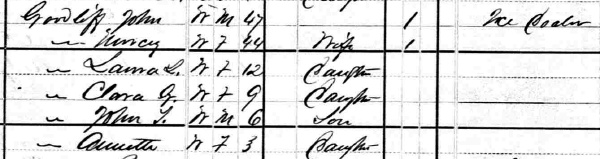 Goodlift John W M 47 1 Ice Dealer
" Nancy W F 44 Wife 1
" Laura L. W F 12 Daughter
" Clara G. W F 9 Daughter
" John T. W M 6 Son
" Annetta W F 3 Daughter